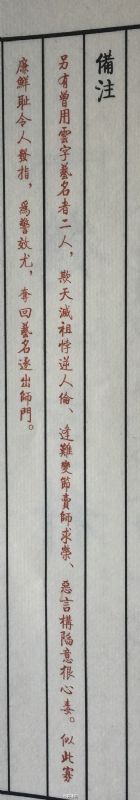 備注
另有曾用雲字藝名者二人，欺天滅祖悖逆人倫、逢難變節賣師求榮、惡言構陷意狠心毒。似此寡
廉鮮恥令人發指，為警效尤，奪回藝名逐出師門。